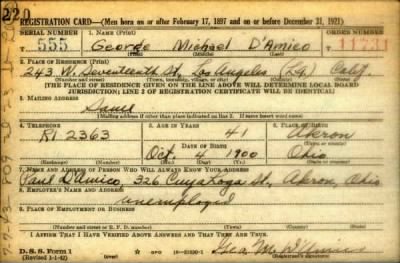 220
REGISTRATION CARD—(Men born on or after February 17, 1897 and on or before December 31, 1921)
SERIAL NUMBER
1. NAME (Print)
ORDER NUMBER
555
George Michael D'Amico
11731
(First) (Middle) (Last)
2. PLACE OF RESIDENCE (Print)
243 W. Seventeenth St. Los Angeles (L.A.) Calif.
(Number and street) (Town, township, village, or city) (County) (State)
[THE PLACE OF RESIDENCE GIVEN ON THE LINE ABOVE WILL DETERMINE LOCAL BOARD
JURISDICTION; LINE 2 OF REGISTRATION CERTIFICATE WILL BE IDENTICAL]
3. MAILING ADDRESS
Same
[Mailing address if other than place indicated on line 2. If same insert word same]
4. TELEPHONE
5. AGE IN YEARS
6. PLACE OF BIRTH
RI 2363
41
Akron
DATE OF BIRTH
(Town or county)
Oct 4 1900
Ohio
(Exchange) (Number)
(Mo.) (Day) (Yr.)
(State or country)
7. NAME AND ADDRESS OF PERSON WHO WILL ALWAYS KNOW YOUR ADDRESS
Paul D'Amico, 326 Cuyahoga St, Akron, Ohio
8. EMPLOYER'S NAME AND ADDRESS
Unemployed
9. PLACE OF EMPLOYMENT OR BUSINESS
(Number and street or R. F. D. number) (Town) (County) (State)
I AFFIRM THAT I HAVE VERIFIED ABOVE ANSWERS AND THAT THEY ARE TRUE.
D. S. S. Form 1
(Revised 1-1-42)
GPO
16—21630-1
Geo M. D'Amico